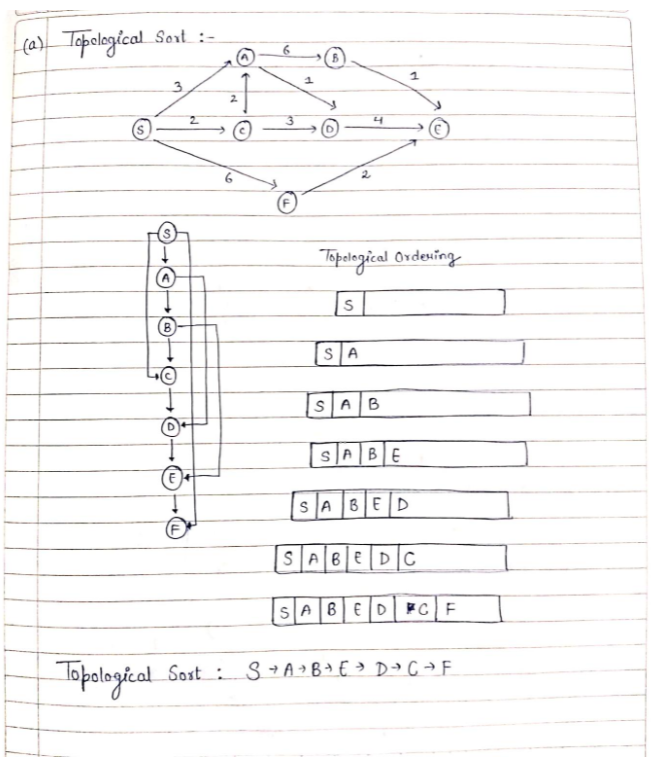 (a) Topological Sort :-
A 6 B
3 2 1 1
S 2 C 3 D 4 E
6 2
F
S
A
B
C
D
E
F
Topological Ordering
S
S A
S A B
S A B E
S A B E D
S A B E D C
S A B E D C F
Topological Sort : S → A → B → E → D → C → F